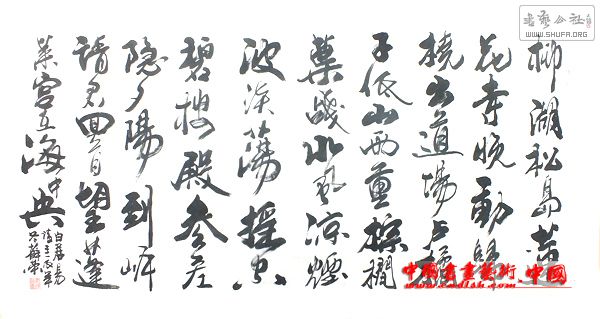 柳湖松島蓮
花寺晚動歸
橈出道場盧橘
子低山雨重棕櫚
葉戰水風涼煙
波淡蕩搖空
碧樓殿參差
隱夕陽到岸
請君回首望蓬
萊宮在海中央
白居易
詩
書藝公社
WWW.SHUFA.ORG
中國書畫藝術.中國